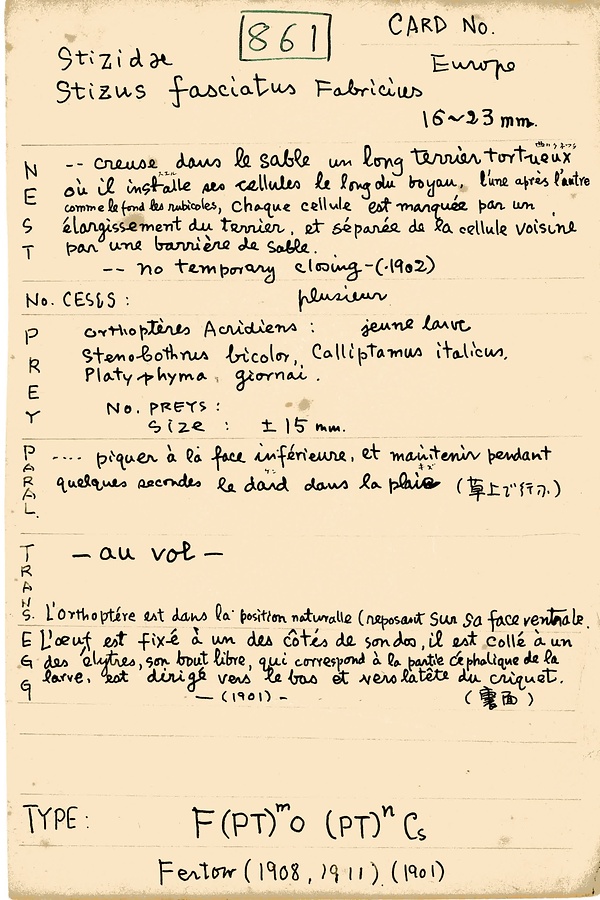 861
CARD No.
Stizidae
Europe
Stizus fasciatus Fabricius
16~23 mm.
NEST
-- creuse dans le sable un long terrier tortueux
où il installe ses cellules le long du boyau, l'une après l'autre
comme le fond les rubicoles, Chaque cellule est marquée par un
élargissement du terrier, et séparée de la cellule voisine
par une barrière de sable.
-- no temporary closing-(.1902)
No. CESLS :
plusieur
PREY
orthoptères Acridiens : jeune larve
Stenobothrus bicolor, Calliptamus italicus,
Platyphyma giornai.
No. PREYS :
Size : ±15 mm.
PARAL.
---- piquer à la face inférieure, et maintenir pendant
quelques secondes le dard dans la plaie (草上で行ふ)
TRANS.
— au vol —
L'Orthoptére est dans la position naturalle (reposant sur sa face ventrale.
EGG
L'œuf est fixé à un des côtés de son dos, il est collé à un
des élytres, son bout libre, qui correspond à la partie céphalique de la
larve, est dirigé vers le bas et vers latête du criquet.
— (1901) -
TYPE :
F(PT)ᵐo (PT)ⁿ Cs
Ferton (1908, 1911) (1901)